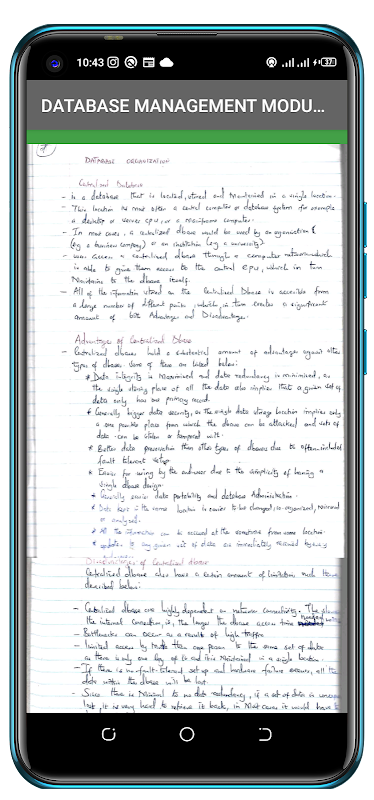 10:43
37
DATABASE MANAGEMENT MODU...
DATABASE ORGANIZATION
Centralized Database
- Is a database that is located, stored and Maintained in a single location.
- This location is most often a central computer or database system for example
a desktop or server CPU, or a mainframe computer.
- In most cases, a centralized dbase would be used by an organisation
(eg a business company) or an institution (eg a university).
- access a centralized dbase through a computer network which
is able to give them access to the central CPU, which in turn
Maintains to the dbase itself.
- All of the information stored on the Centralized Dbase is accessible from
a large number of different points, which in turn creates a significant
amount of both Advantages and Disadvantages.
Advantages of Centralized Dbase
- Centralized dbases hold a substantial amount of advantages against other
types of dbases some of them are listed below:
* Data integrity is Maximised and data redundancy is minimised, as
the single storing place of all the data also implies that a given set of
data only has one primary record.
* Generally bigger data security, as the single data storage location implies only
a one possible place from which the dbase can be attacked and sets of
data can be stolen or tampered with.
* Better data preservation than other types of dbases due to often-included
fault tolerant setup.
* Easier for using by the end-user due to the simplicity of having a
single dbase design.
* Generally easier data portability and database Administration.
* Data kept in the same location is easier to be changed, re-organized, mirrored
or analysed.
* All the information can be accessed at the same time from same location.
* updates to any given set of data are immediately received by every
Disadvantages of Centralized dbase
Centralized dbase also have a certain amount of limitations such
described below:
- Centralized dbase are highly dependent on network connectivity. The
the internet connection is, the longer the dbase access time needed
- Bottlenecks can occur as a result of high traffic
- limited access by more than one person to the same set of data
as there is only one copy of it and it is Maintained in a single location.
- If there is no fault-tolerant set up and hardware failure occurs, all the
data within the dbase will be lost.
- Since there is Minimal to no data redundancy, if a set of data is
lost, it is very hard to retrieve it back, in Most cases it would have to